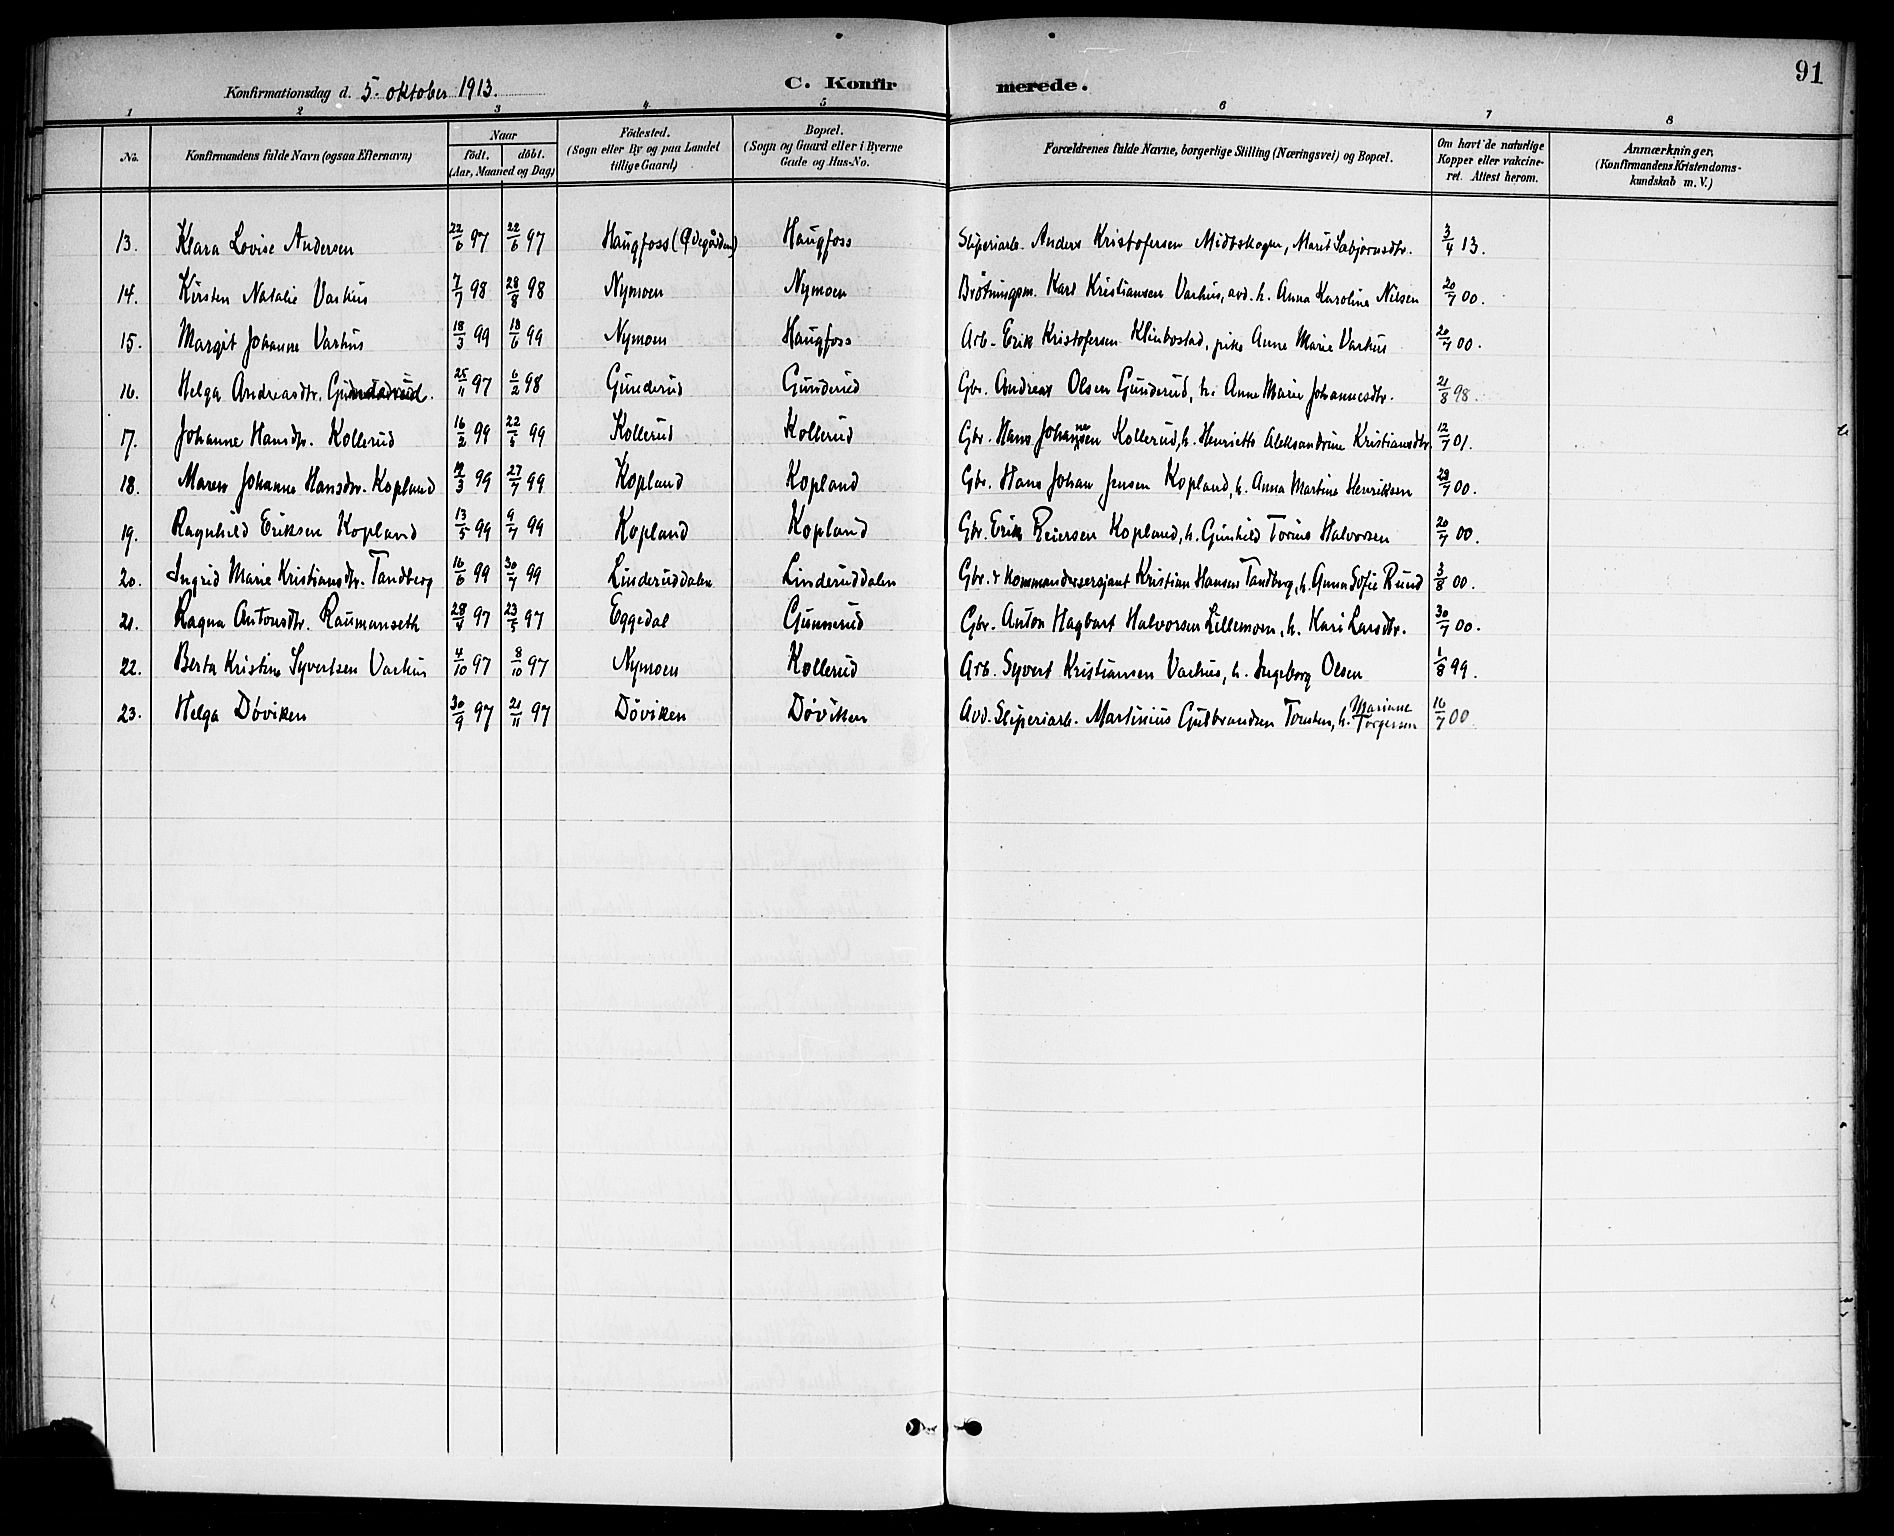 91
Konfirmationsdag d. 5. oktober 1913.
C. Konfirmerede.
1 2 3 4 5 6 7 8
No.
Konfirmandens fulde Navn (ogsaa Efternavn)
Naar
födt. döbt.
(Aar, Maaned og Dag)
Födested.
(Sogn eller By og paa Landet
tillige Gaard)
Bopæl.
(Sogn og Gaard eller i Byerne
Gade og Hus-No.
Forældrenes fulde Navne, borgerlige Stilling (Næringsvei) og Bopæl.
Om havt de naturlige
Kopper eller vakcine-
ret. Attest herom.
Anmærkninger,
(Konfirmandens Kristendoms-
kundskab m. V.)
13. Klara Lovise Andersen 22/6 97 22/6 97 Haugfoss (Ødegården) Haugfoss Sliperiarb. Anders Kristofersen Midtskogen, Marit Sabjørnsdtr. 3/4 13.
14. Kirsten Natalie Varhus 7/7 98 28/8 98 Nymoen Nymoen Brøtningsm. Karl Kristiansen Varhus, avd. h. Anna Karoline Nilsen 20/7 00.
15. Margit Johanne Varhus 18/3 99 18/6 99 Nymoen Haugfoss Arb. Erik Kristofersen Klinbostad, pike Anne Marie Varhus 20/7 00.
16. Helga Andreasdtr. Gunderud. 25/11 97 6/2 98 Gunderud Gunderud Gbr. Andreas Olsen Gunderud, h. Anne Marie Johannesdtr. 21/8 98.
17. Johanne Hansdtr. Kollerud 16/2 99 22/5 99 Kollerud Kollerud Gbr. Hans Johannesen Kollerud, h. Henriette Aleksandrine Kristiansdtr. 12/7 01.
18. Maren Johanne Hansdtr. Kopland 19/3 99 27/7 99 Kopland Kopland Gbr. Hans Johan Jensen Kopland, h. Anna Martine Henriksen 28/7 00.
19. Ragnhild Eriksen Kopland 13/5 99 9/7 99 Kopland Kopland Gbr. Erik Reiersen Kopland, h. Gunhild Torine Halvorsen 20/7 00.
20. Ingrid Marie Kristiansdtr. Tandberg 16/6 99 30/7 99 Linderuddalen Linderuddalen Gbr. & Kommandersersjant Kristian Hansen Tandberg, h. Anna Sofie Rund 3/8 00.
21. Ragna Antonsdtr. Raumanseth 28/4 97 23/5 97 Eggedal Gunnerud Gbr. Anton Hagbart Halvorsen Lillemoen, h. Kari Larsdtr. 30/7 00.
22. Berta Kristine Syvertsen Varhus 4/10 97 8/10 97 Nymoen Kollerud Arb. Syvert Kristiansen Varhus, h. Ingeborg Olsen 1/8 99.
23. Helga Døviken 30/9 97 21/11 97 Døviken Døviken Avd. Sliperiarb. Martinius Gulbrandsen Tomten, h. Mariane Torgersen 16/7 00